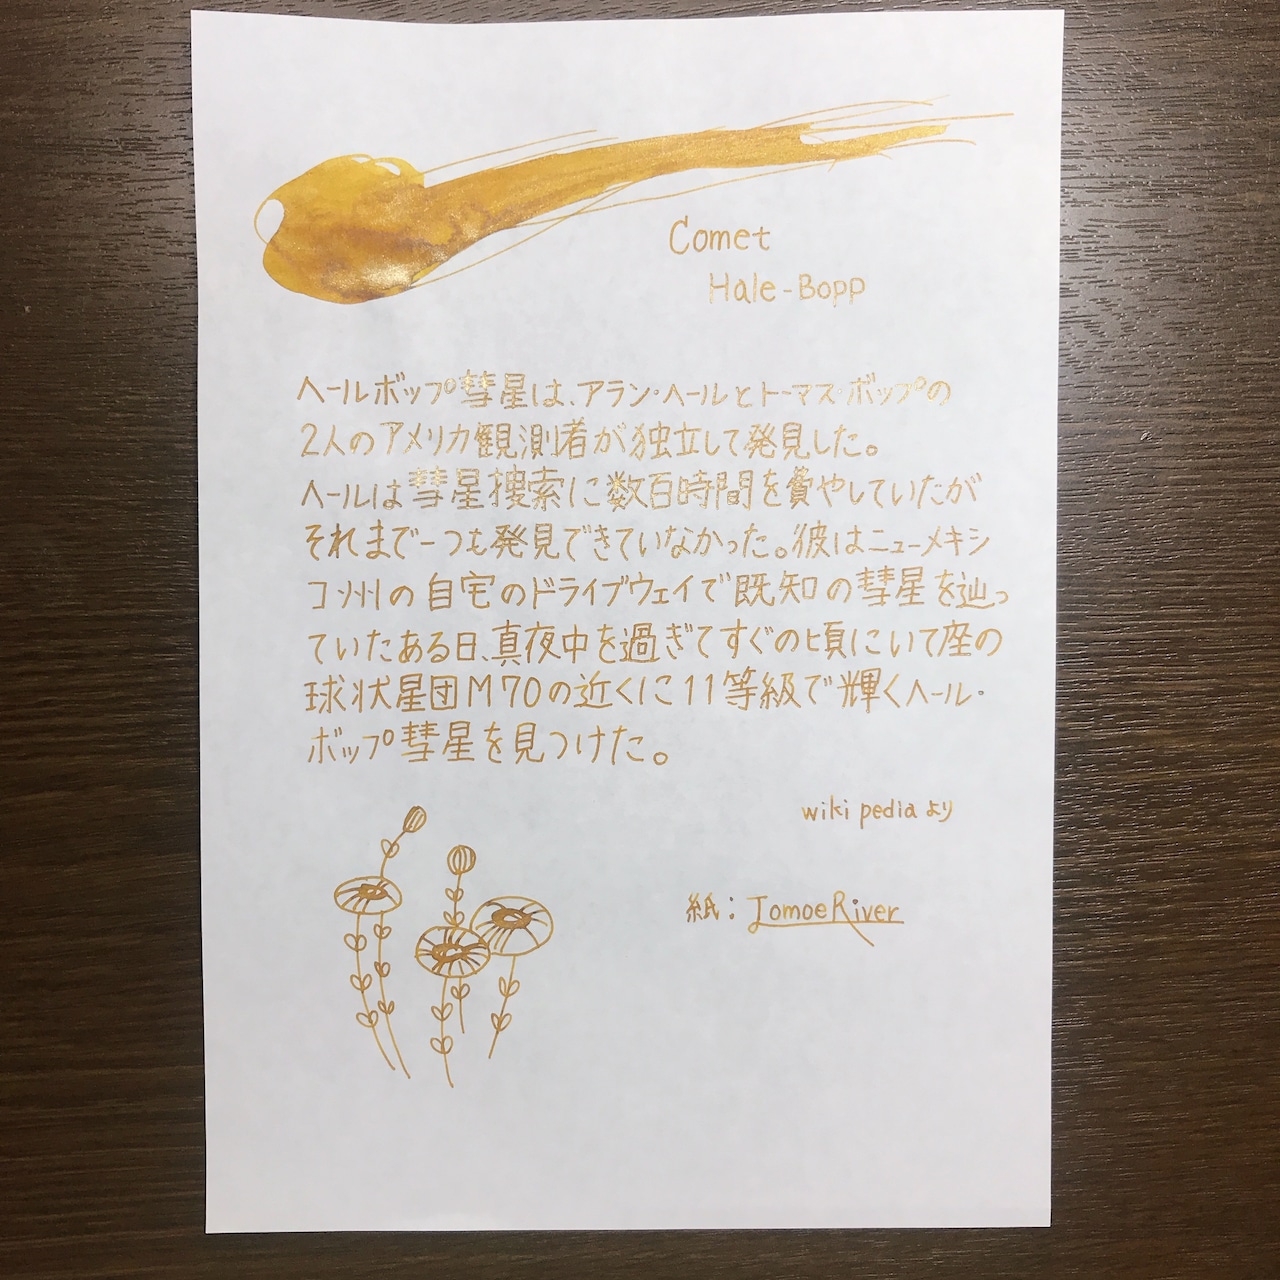 Comet
Hale-Bopp
ヘールボップ彗星は、アラン・ヘールとトーマス・ボップの
2人のアメリカ観測者が独立して発見した。
ヘールは彗星捜索に数百時間を費やしていたが
それまで一つも発見できていなかった。彼はニューメキシ
コ州の自宅のドライブウェイで既知の彗星を辿っ
ていたある日、真夜中を過ぎてすぐの頃にいて座の
球状星団M70の近くに11等級で輝くヘール・
ボップ彗星を見つけた。
wikipediaより
紙：TomoeRiver